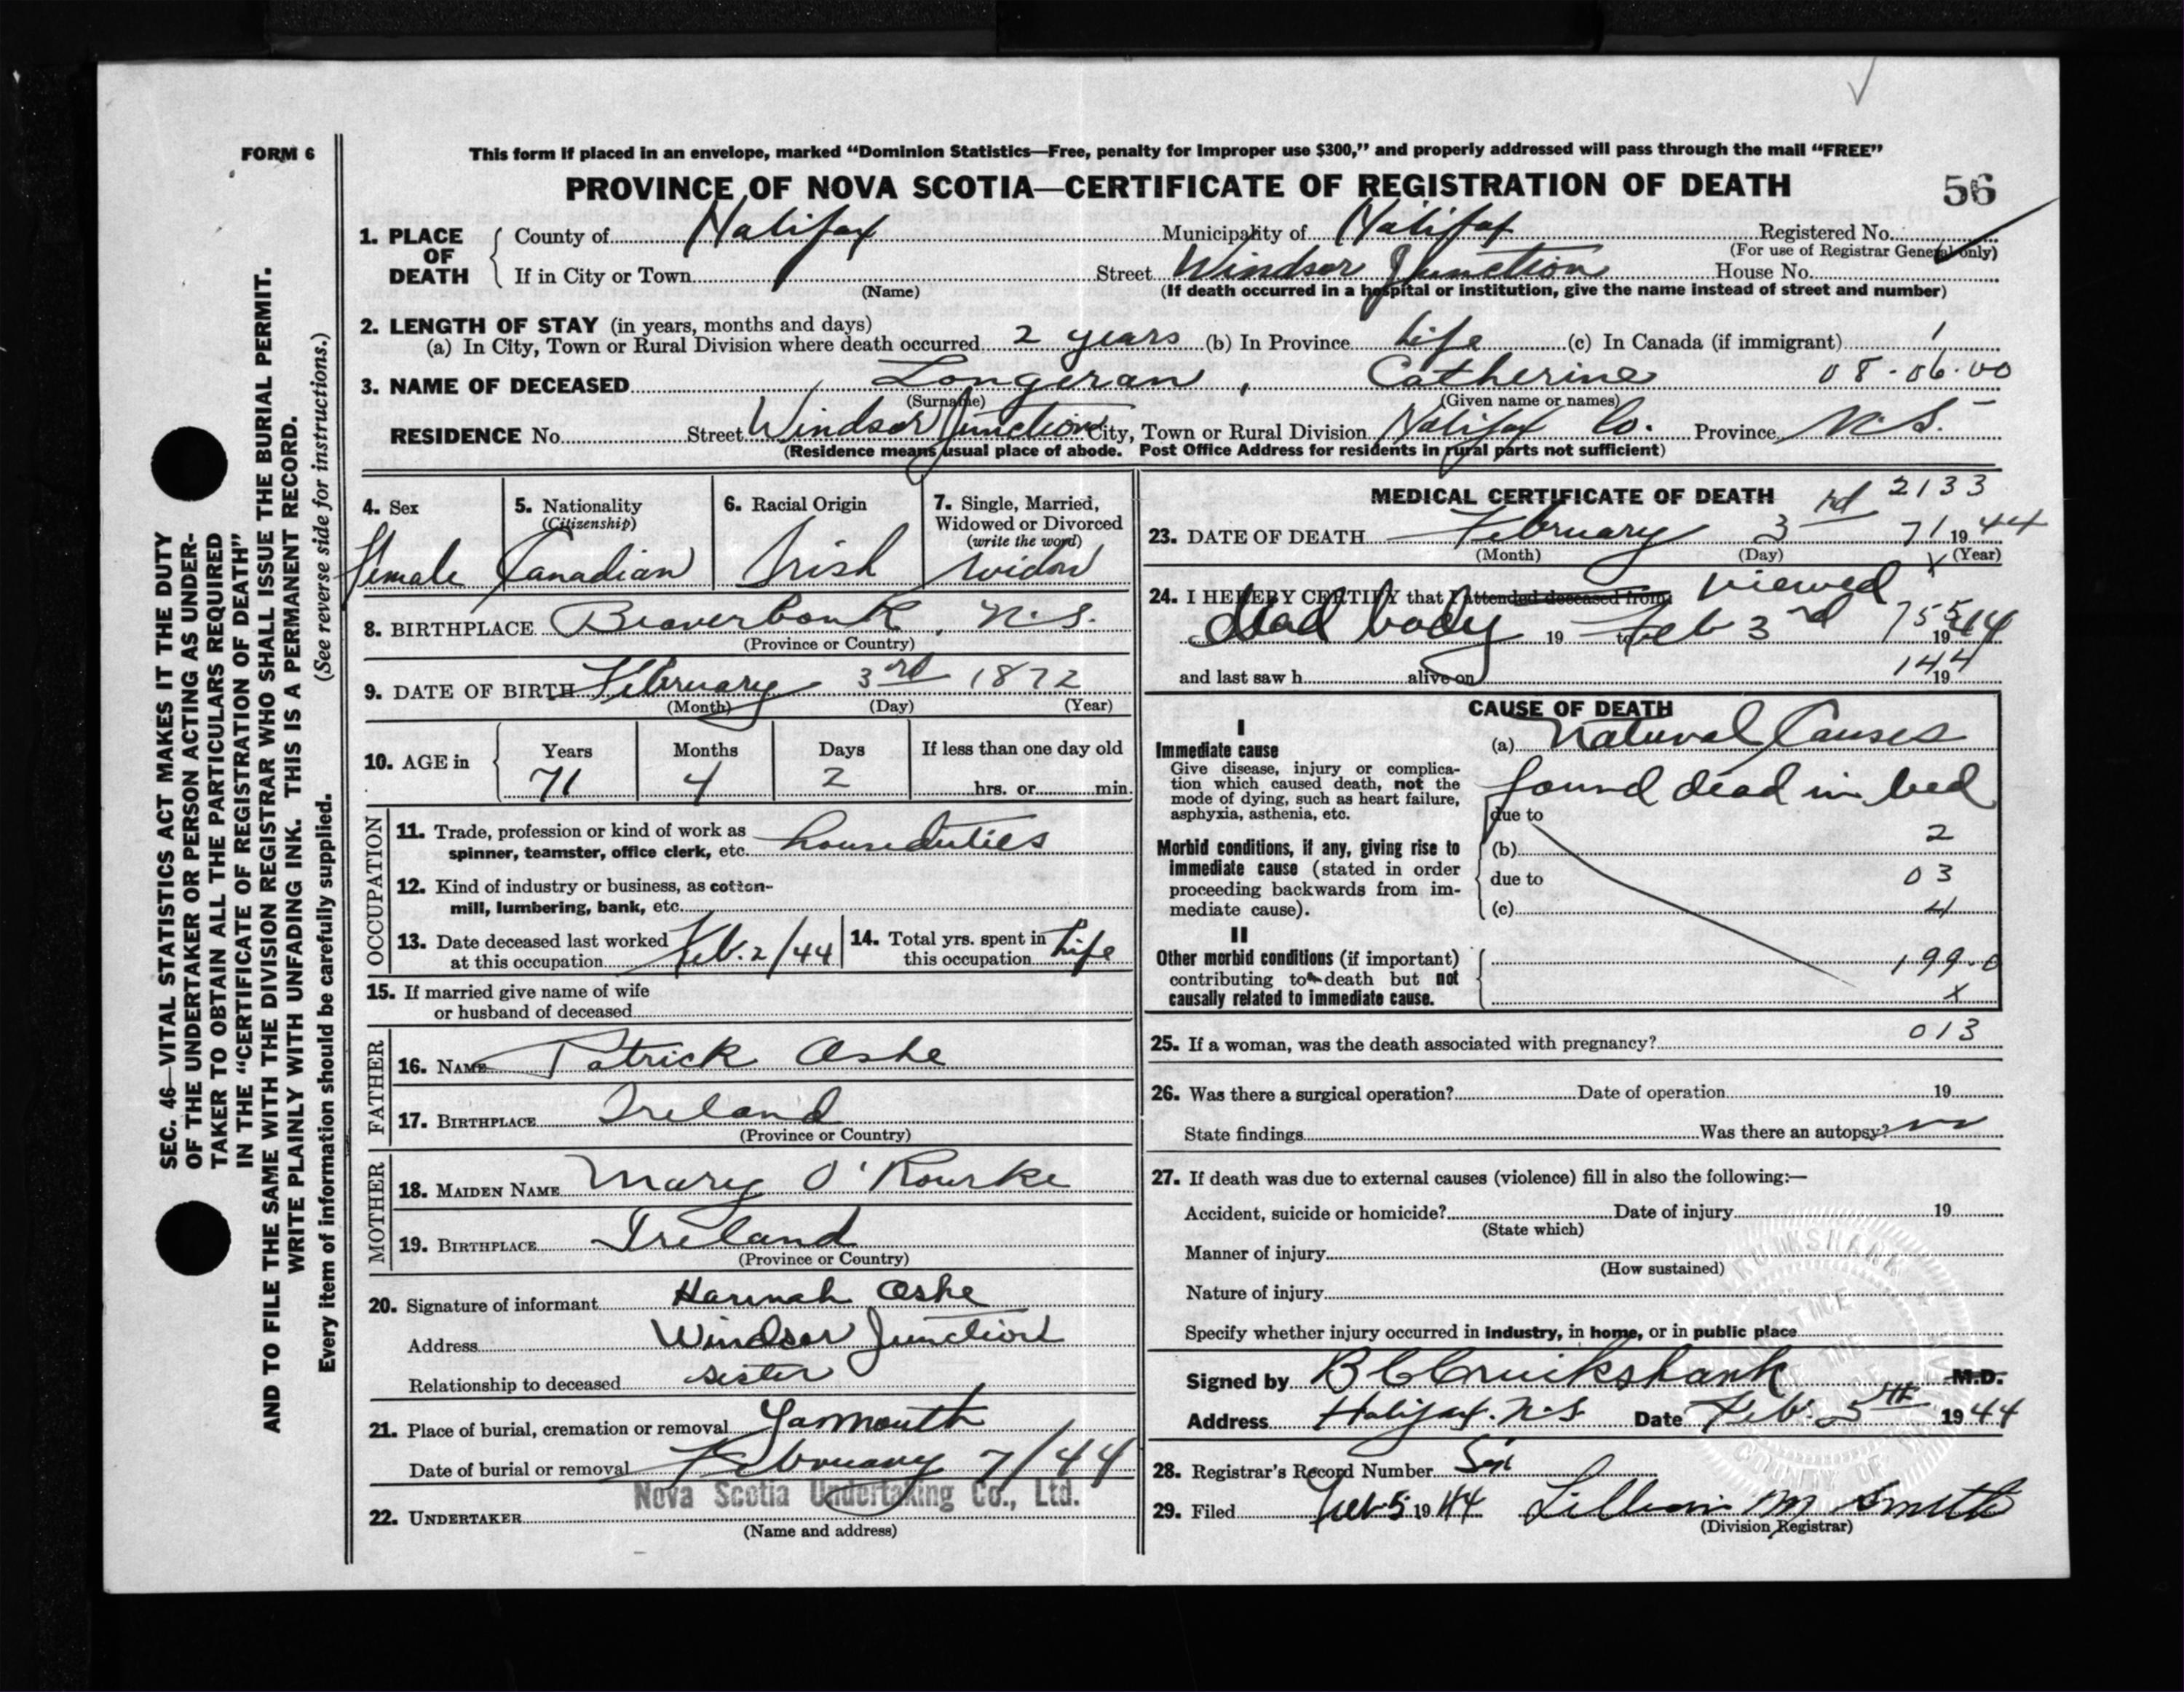 FORM 6
This form if placed in an envelope, marked "Dominion Statistics—Free, penalty for improper use $300," and properly addressed will pass through the mail "FREE"
PROVINCE OF NOVA SCOTIA—CERTIFICATE OF REGISTRATION OF DEATH
56
1. PLACE OF DEATH { County of Halifax Municipality of Halifax Registered No.
(For use of Registrar General only)
If in City or Town Street Windsor Junction House No.
(Name) (If death occurred in a hospital or institution, give the name instead of street and number)
2. LENGTH OF STAY (in years, months and days)
(a) In City, Town or Rural Division where death occurred 2 years (b) In Province Life (c) In Canada (if immigrant) 1
3. NAME OF DECEASED Longeran, Catherine 08-06-00
(Surname) (Given name or names)
RESIDENCE No. Street Windsor Junction City, Town or Rural Division Halifax Co. Province N.S.
(Residence means usual place of abode. Post Office Address for residents in rural parts not sufficient)
4. Sex 5. Nationality (Citizenship) 6. Racial Origin 7. Single, Married, Widowed or Divorced (write the word)
Female Canadian Irish Widow
8. BIRTHPLACE Beaverbank, N.S.
(Province or Country)
9. DATE OF BIRTH February 3rd 1872
(Month) (Day) (Year)
10. AGE in { Years Months Days If less than one day old
71 4 2 hrs. or min.
OCCUPATION
11. Trade, profession or kind of work as
spinner, teamster, office clerk, etc. houseduties
12. Kind of industry or business, as cotton-
mill, lumbering, bank, etc.
13. Date deceased last worked at this occupation Feb. 2/44 14. Total yrs. spent in this occupation Life
15. If married give name of wife
or husband of deceased
FATHER
16. NAME Patrick Ashe
17. BIRTHPLACE Ireland
(Province or Country)
MOTHER
18. MAIDEN NAME Mary O'Rourke
19. BIRTHPLACE Ireland
(Province or Country)
20. Signature of informant Hannah Ashe
Address Windsor Junction
Relationship to deceased sister
21. Place of burial, cremation or removal Yarmouth
Date of burial or removal February 7/44
Nova Scotia Undertaking Co., Ltd.
22. UNDERTAKER
(Name and address)
MEDICAL CERTIFICATE OF DEATH 2133
23. DATE OF DEATH February 3rd 71 1944
(Month) (Day) (Year)
24. I HEREBY CERTIFY that I attended deceased from viewed
dead body 19 to Feb 3rd 755 1944
and last saw h alive on 144 19
CAUSE OF DEATH
I
Immediate cause (a) Natural Causes
Give disease, injury or complica-
tion which caused death, not the
mode of dying, such as heart failure,
asphyxia, asthenia, etc.
found dead in bed
due to
Morbid conditions, if any, giving rise to
immediate cause (stated in order
proceeding backwards from im-
mediate cause).
(b) 2
due to 03
(c) 4
II
Other morbid conditions (if important)
contributing to death but not
causally related to immediate cause.
199-0
X
25. If a woman, was the death associated with pregnancy? 013
26. Was there a surgical operation? Date of operation 19
State findings Was there an autopsy?
27. If death was due to external causes (violence) fill in also the following:—
Accident, suicide or homicide? Date of injury 19
(State which)
Manner of injury
(How sustained)
Nature of injury
Specify whether injury occurred in industry, in home, or in public place
Signed by B C Cruikshank M.D.
Address Halifax. N.S. Date Feb. 5th 1944
28. Registrar's Record Number Six
29. Filed Feb 5 1944 Lillian M Smith
(Division Registrar)
SEC. 46—VITAL STATISTICS ACT MAKES IT THE DUTY
OF THE UNDERTAKER OR PERSON ACTING AS UNDER-
TAKER TO OBTAIN ALL THE PARTICULARS REQUIRED
IN THE "CERTIFICATE OF REGISTRATION OF DEATH"
AND TO FILE THE SAME WITH THE DIVISION REGISTRAR WHO SHALL ISSUE THE BURIAL PERMIT.
WRITE PLAINLY WITH UNFADING INK. THIS IS A PERMANENT RECORD.
Every item of information should be carefully supplied. (See reverse side for instructions.)